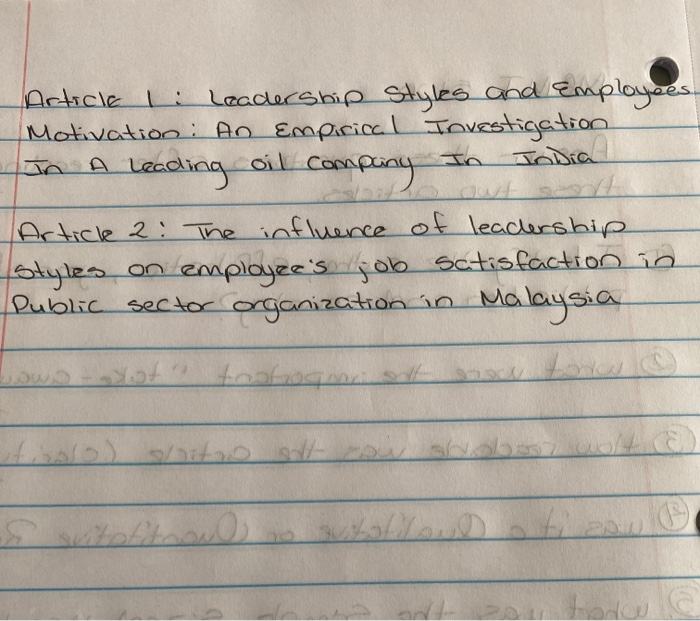 Article 1: Leadership Styles and Employees
Motivation: An Empirical Investigation
In A Leading oil company In India
Article 2: The influence of leadership
styles on employee's job satisfaction in
Public sector organization in Malaysia